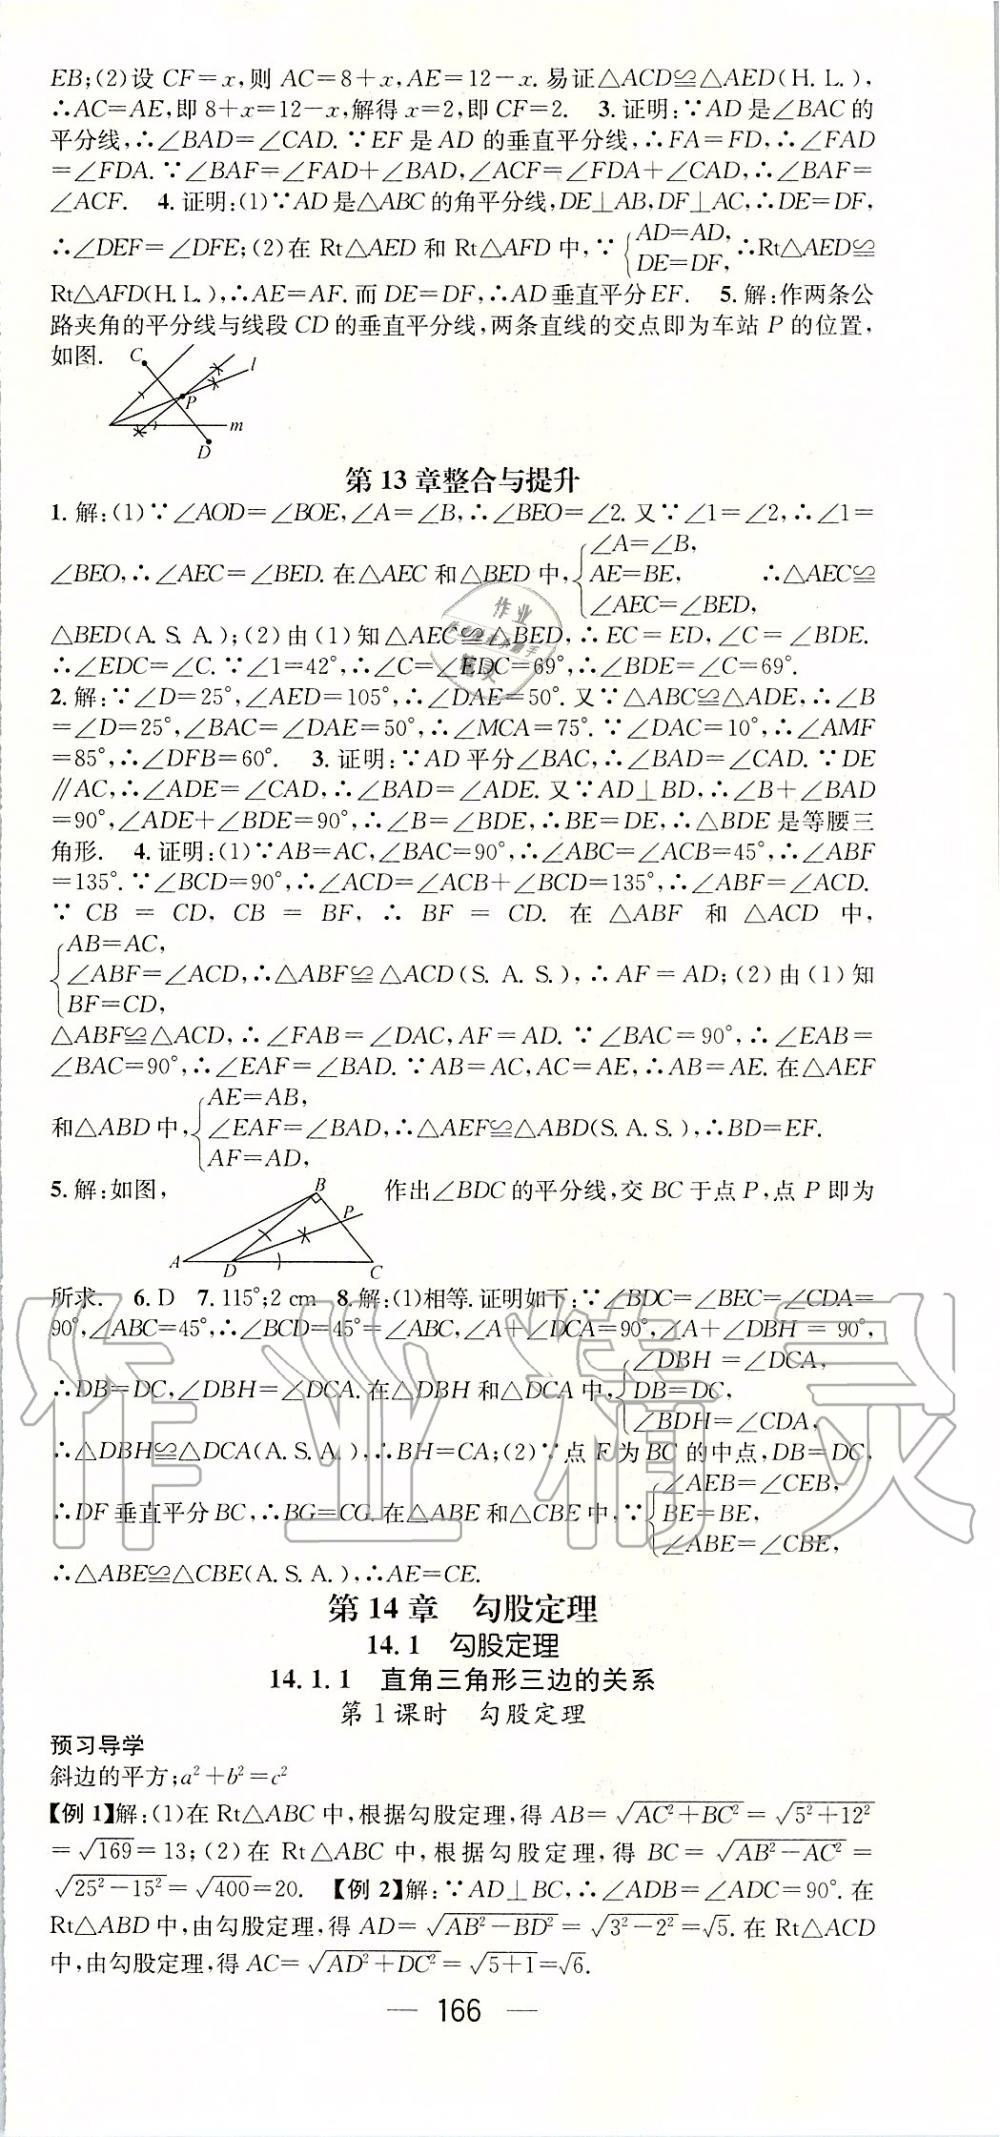 EB;(2)设 CF=x,则 AC=8+x,AE=12-x.易证△ACD≌△AED(H.L.),
∴AC=AE,即 8+x=12-x,解得 x=2,即 CF=2. 3.证明:∵AD 是∠BAC 的
平分线,∴∠BAD=∠CAD.∵EF 是 AD 的垂直平分线,∴FA=FD,∴∠FAD
=∠FDA.∵∠BAF=∠FAD+∠BAD,∠ACF=∠FDA+∠CAD,∴∠BAF=
∠ACF. 4.证明:(1)∵AD是△ABC的角平分线,DE⊥AB,DF⊥AC,∴DE=DF,
∴∠DEF=∠DFE;(2)在 Rt△AED 和 Rt△AFD 中,∵{AD=AD, DE=DF, ∴Rt△AED≌
Rt△AFD(H.L.),∴AE=AF.而 DE=DF,∴AD垂直平分EF. 5.解:作两条公
路夹角的平分线与线段 CD 的垂直平分线,两条直线的交点即为车站 P 的位置,
如图. C l P m D
第 13 章整合与提升
1.解:(1)∵∠AOD=∠BOE,∠A=∠B,∴∠BEO=∠2.又∵∠1=∠2,∴∠1=
∠BEO,∴∠AEC=∠BED.在△AEC 和△BED 中,{∠A=∠B, AE=BE, ∠AEC=∠BED, ∴△AEC≌
△BED(A.S.A.);(2)由(1)知△AEC≌△BED,∴EC=ED,∠C=∠BDE.
∴∠EDC=∠C.∵∠1=42°,∴∠C=∠EDC=69°,∴∠BDE=∠C=69°.
2.解:∵∠D=25°,∠AED=105°,∴∠DAE=50°.又∵△ABC≌△ADE,∴∠B
=∠D=25°,∠BAC=∠DAE=50°,∴∠MCA=75°.∵∠DAC=10°,∴∠AMF
=85°,∴∠DFB=60°. 3.证明:∵AD平分∠BAC,∴∠BAD=∠CAD.∵DE
∥AC,∴∠ADE=∠CAD,∴∠BAD=∠ADE.又∵AD⊥BD,∴∠B+∠BAD
=90°,∠ADE+∠BDE=90°,∴∠B=∠BDE,∴BE=DE,∴△BDE 是等腰三
角形. 4.证明:(1)∵AB=AC,∠BAC=90°,∴∠ABC=∠ACB=45°,∴∠ABF
=135°.∵∠BCD=90°,∴∠ACD=∠ACB+∠BCD=135°,∴∠ABF=∠ACD.
∵ CB = CD, CB = BF, ∴ BF = CD. 在 △ABF 和 △ACD 中,
{AB=AC, ∠ABF=∠ACD, BF=CD, ∴△ABF≌△ACD(S.A.S.),∴AF=AD;(2)由(1)知
△ABF≌△ACD,∴∠FAB=∠DAC,AF=AD.∵∠BAC=90°,∴∠EAB=
∠BAC=90°,∴∠EAF=∠BAD.∵AB=AC,AC=AE,∴AB=AE.在△AEF
和△ABD 中,{AE=AB, ∠EAF=∠BAD, AF=AD, ∴△AEF≌△ABD(S.A.S.),∴BD=EF.
5.解:如图, A B P D C 作出∠BDC的平分线,交 BC于点P,点 P 即为
所求. 6.D 7.115°;2 cm 8.解:(1)相等.证明如下:∵∠BDC=∠BEC=∠CDA=
90°,∠ABC=45°,∴∠BCD=45°=∠ABC,∠A+∠DCA=90°,∠A+∠DBH = 90°,
∴DB=DC,∠DBH=∠DCA.在△DBH 和△DCA 中,{∠DBH =∠DCA, DB=DC, ∠BDH=∠CDA,
∴△DBH≌△DCA(A.S.A.),∴BH=CA;(2)∵点 F为 BC 的中点,DB=DC,
∴DF垂直平分BC,∴BG=CG.在△ABE 和△CBE 中,∵{∠AEB=∠CEB, BE=BE, ∠ABE=∠CBE,
∴△ABE≌△CBE(A.S.A.),∴AE=CE.
第 14 章 勾股定理
14.1 勾股定理
14.1.1 直角三角形三边的关系
第 1 课时 勾股定理
预习导学
斜边的平方;a²+b²=c²
【例1】解:(1)在 Rt△ABC 中,根据勾股定理,得 AB=√(AC²+BC²)=√(5²+12²)
=√169=13;(2)在 Rt△ABC 中,根据勾股定理,得 BC=√(AB²-AC²)=
√(25²-15²)=√400=20. 【例2】解:∵AD⊥BC,∴∠ADB=∠ADC=90°.在
Rt△ABD 中,由勾股定理,得 AD=√(AB²-BD²)=√(3²-2²)=√5.在 Rt△ACD
中,由勾股定理,得 AC=√(AD²+DC²)=√(5+1)=√6.
— 166 —
作业精灵